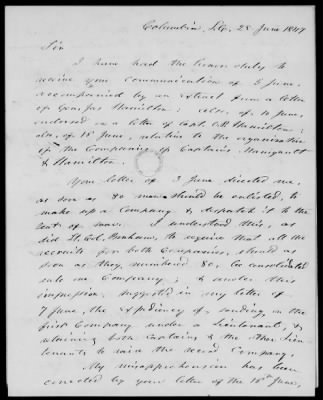 Columbia, S.C. 25 June 1847
Sir
I have had the honor duly to
receive your communication of 5 June,
accompanied by an extract from a letter
of Gen. Jas Hamilton: also, of 10 June,
endorsed on a letter of Capt. Hamilton:
also, of 18 June, relative to the organization
of the Companies of Captains Manigault
& Hamilton.
Your letter of 3 June directed me,
as soon as 80 men should be enlisted, to
make up a Company & despatch it to the
Seat of war. I understood this, as
did Lt. Col. Bonham, to require that all the
recruits for both Companies, should as
soon as they numbered 80, be consolidated
into one Company; & under this
impression, suggested in my letter of
7 June, the expediency of sending on the
first Company under a Lieutenant, &
retaining both Captains & the other Lieu-
tenants to raise the second Company.
My misapprehension has been
corrected by your letter of the 18th June,